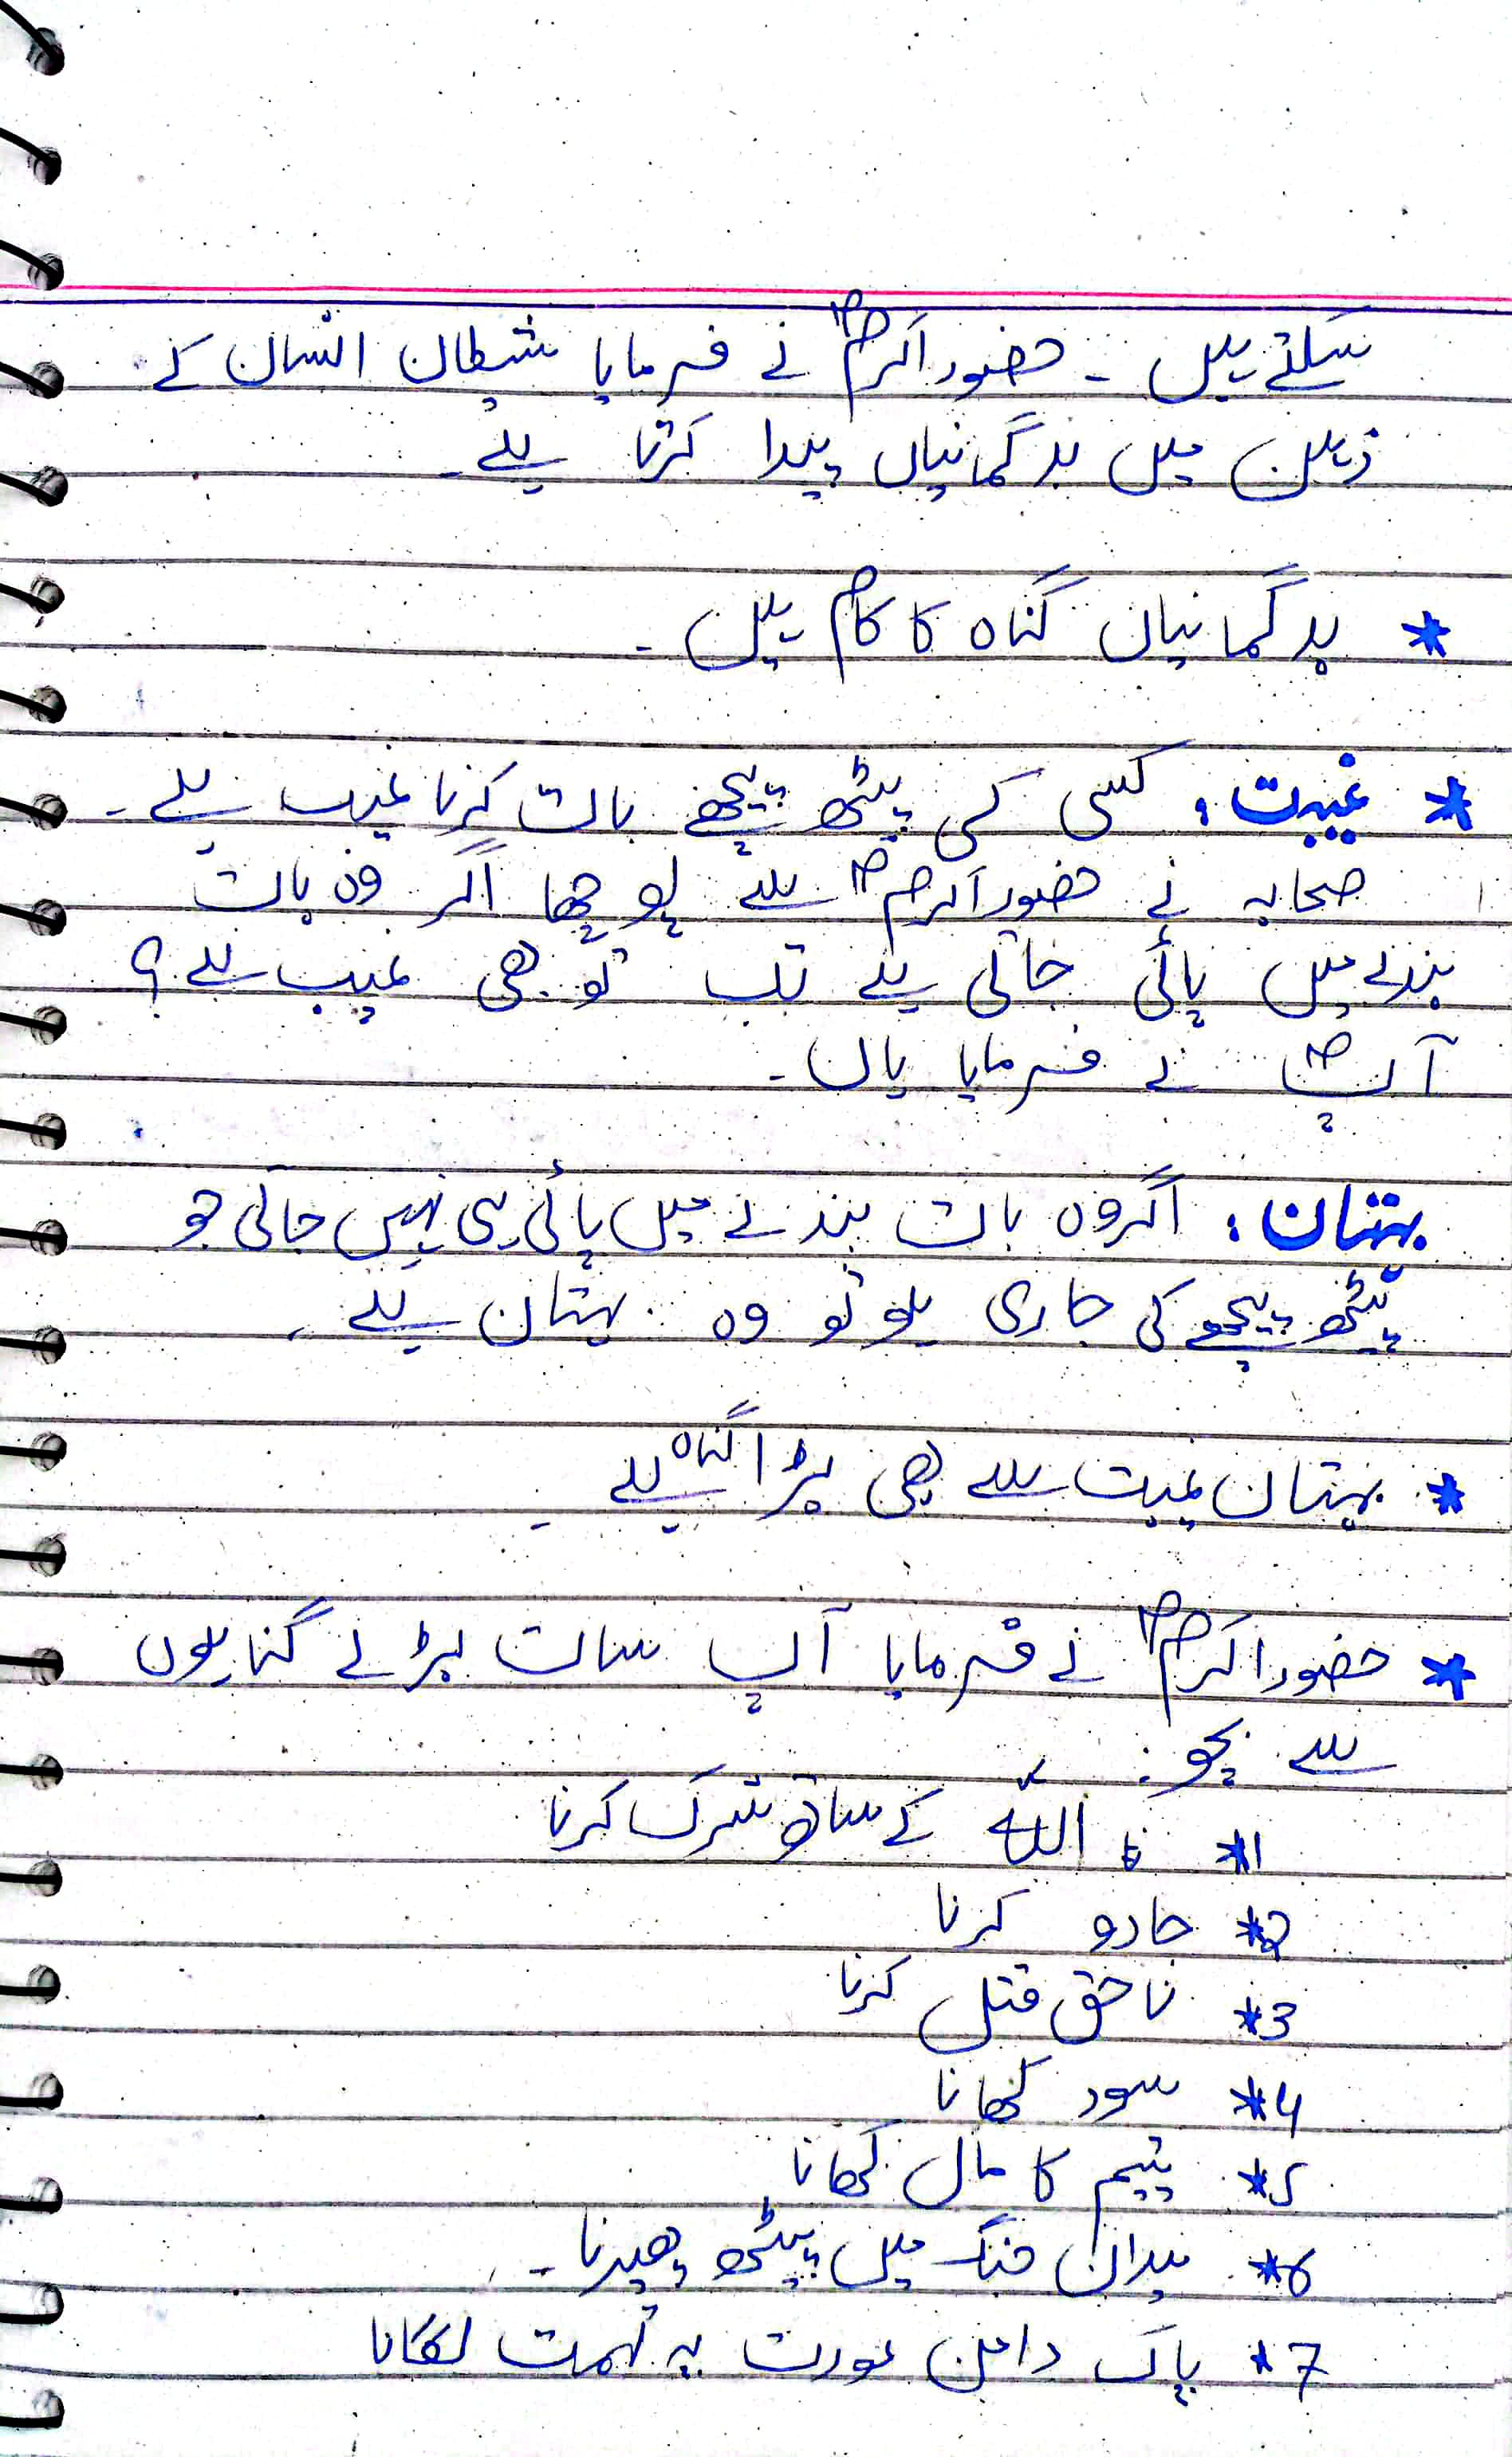 سکتے ہیں ۔ حضور اکرم ؐ نے فرمایا شیطان انسان کے
ذہن میں بدگمانیاں پیدا کرتا ہے۔
* بدگمانیاں گناہ کا کام ہیں ۔
* غیبت: کسی کی پیٹھ پیچھے بات کرنا غیب ہے ۔
صحابہ نے حضور اکرم ؐ سے پوچھا اگر وہ بات
بندے میں پائی جاتی ہے تب تو بھی غیب ہے؟
آپ ؐ نے فرمایا ہاں ۔
بہتان: اگر وہ بات بندے میں پائی ہی نہیں جاتی جو
پیٹھ پیچھے کی جارہی ہو تو وہ بہتان ہے ۔
* بہتان غیبت سے بھی بڑا گناہ ہے ۔
* حضور اکرم ؐ نے فرمایا آپ سات بڑے گناہوں
سے بچو:
*1 اللہ کے ساتھ شرک کرنا
*2 جادو کرنا
*3 ناحق قتل کرنا
*4 سود کھانا
*5 یتیم کا مال کھانا
*6 میدان جنگ میں پیٹھ پھیرنا ۔
*7 پاک دامن عورت پہ تہمت لگانا